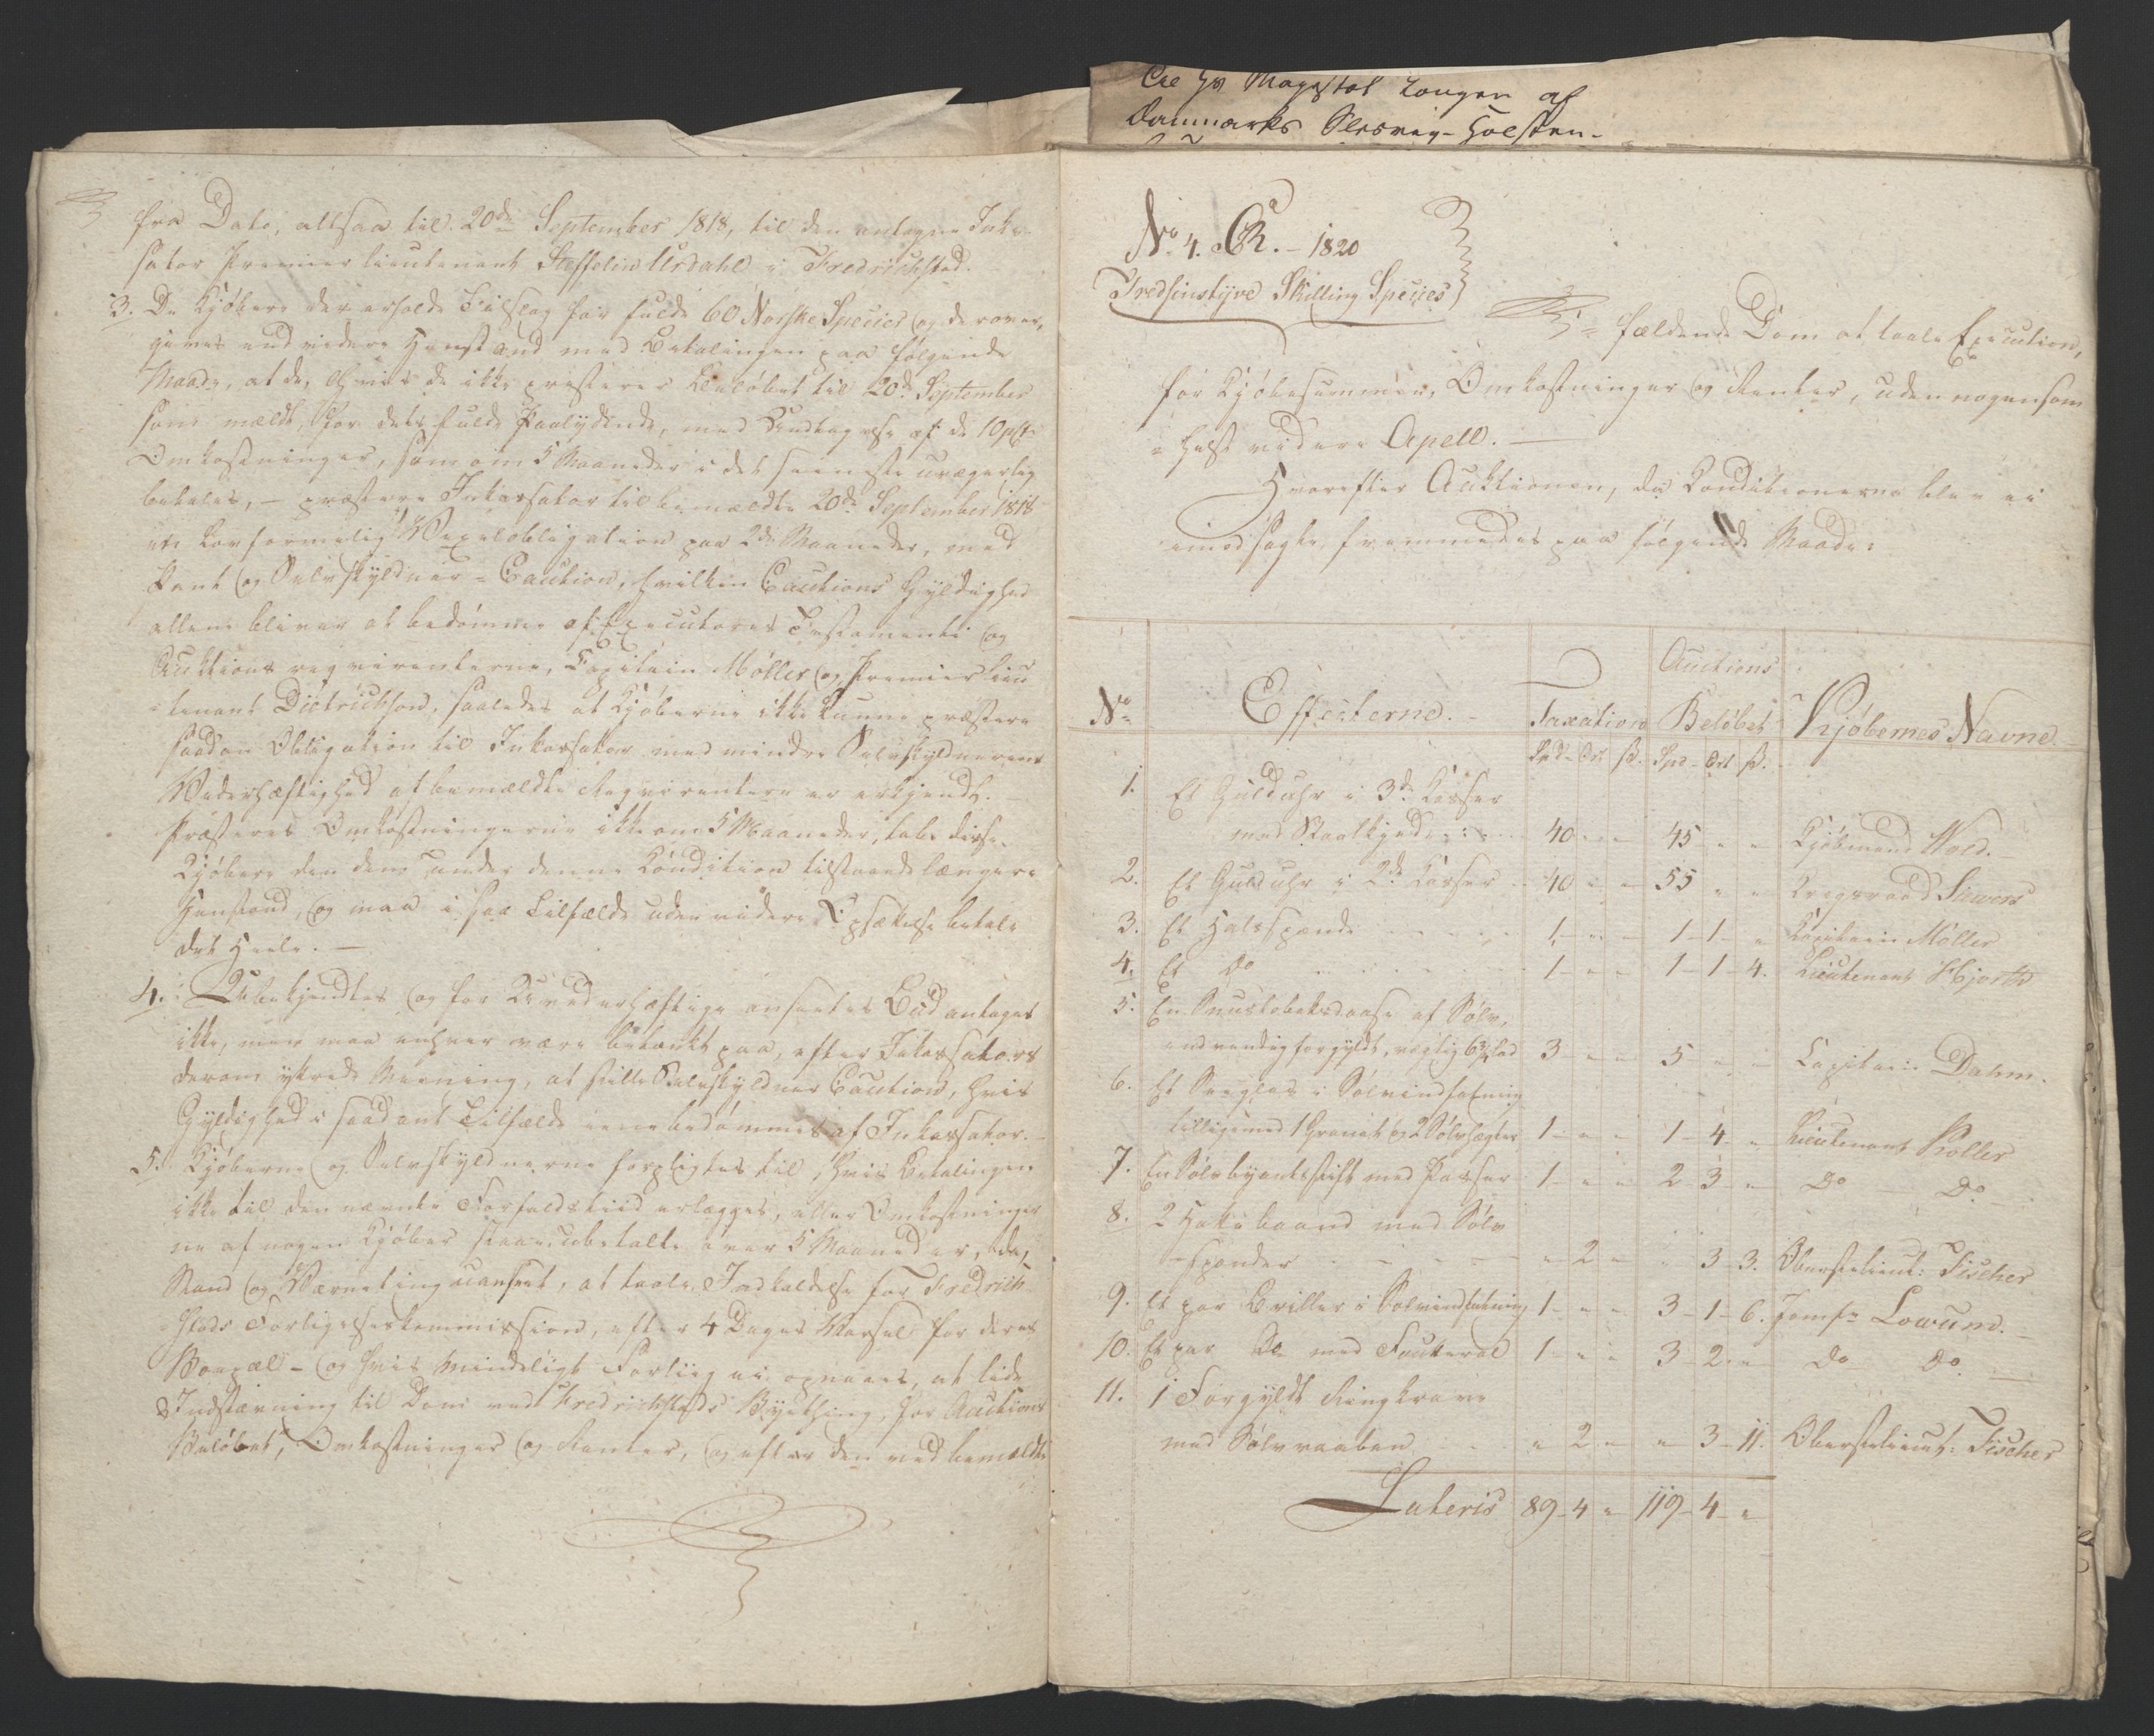 Til Hs Majestæt Kongen af
Danmarks Slesvig-Holsten-
fra Dato, altsaa til 20de September 1818, til den antagne Inkas-
sator Premier Lieutenant Steffelin Urdahl i Fredrichstad.
3. De Kjøbere der erholde Tilslag for fulde 60 Norske Species og derover,
gives end videre Henstand med Betalingen paa følgende
Maade, at de, Hvis de ikke præsterer Beløbet til 20de September
som meldt, for dets fulde Paalydende, med Undtagelse af de 10 pCt
Omkostninger, som om 5 Maaneder i det seeneste uvægerlig
betales, – præstere Inkassator til bemældte 20de September 1818
en Lovformelig Vexelobligation paa 2de Maaneder, med
Pant og Selvskyldner-Caution, hvilken Cautions Gyldighed
allene bliver at bedømme af Executores Testamenti og
Auktions reqvirenterne, Capitain Møller og Premierlieu
tenant Dietrichson, saaledes at Kjøberne ikke kunne præstere
saadan Obligation til Inkassator med mindre Selvskyldnerens
Vederhæftighed af bemældte Reqvirentere er erkjendt. –
Præsteres Omkostningerne ikke om 5 Maaneder, tabe disse
Kjøbere den dem under denne Kondition tilstaaede længere
Henstand, og maa i saa Tilfælde uden videre Opsættelse betale
det Heele. –
4. Ubekjendtes og for Uvederhæftige ansettes Bud antages
ikke, men maa enhver være betænkt paa, efter Inkassators
derom yttrede Meening, at stille Selvskyldner Caution, hvis
Gyldighed i saadant Tilfælde eene bedømmes af Inkassator. –
5. Kjøberne og Selvskyldnerne forpligtes til, Hvis Betalingen
ikke til den nævnte Forfaldstiid erlægges, eller Omkostninger
ne af nogen Kjøber staae ubetalte over 5 Maaneder, da,
Stand og Værneting uanseet, at taale Indkaldelse for Fredrich
stads Forligelseskommission, efter 4 Dages Varsel for deres
Boepæl – og hvis Mindeligt Forliig ei opnaaes, at lide
Indstævning til Dom ved Fredrichstads Byething, for Auctions
Beløbet, Omkostninger og Renter, og efter den ved bemældte
No 4. CR. – 1820
Tredsinstyve Skilling Species
fældende Dom at taale Execution,
for Kjøbesummen, Omkostninger og Renter, uden nogensom
helst videre Apell. –
Hvorefter Auktionen, da Konditionerne blev ei
imodsagte, fremmedes paa følgende Maade:
No Effecterne. Taxation Auctions Beløbet Kjøbernes Navne
Spd – Ort ß. Spd – Ort ß.
1. Et Gulduhr i 3de Kasser
med Staalkjede 40 – – 45 – – Kjøbmand Wold. –
2. Et Gulduhr i 2de Kasser 40 – – 55 – – Krigsraad Siewers
3. Et Halsspænde 1 – – 1 – 1 – Capitain Møller
4. Et Do 1 – – 1 – 1 – 4. Lieutenant Hjorth
5. En Snustobaksdaase af Sølv,
indvendig forgyldt, vægtig 6¾ Lod 3 – – 5 – – Capitain Dahm.
6. Et Seeglas i Sølvindfatning
tilligemed 1 Granat og 2 Sølvhægter 1 – – 1 – 4 – Lieutenant Roller
7. En Sølvblyantsstift med Passer 1 – – 2 – 3 – Do – Do –
8. 2 Hattebaand med Sølv
spender – 2 – – 3 – 3. Oberstelieut: Fischer
9. Et par Briller i Sølvindfatning 1 – – 3 – 1 – 6. Jomfr Lowum. –
10. Et par Do med Foutteral 1 – – 3 – 2 – Do – Do. –
11. 1 Forgyldt Ringkrave
med Sølvvaaben – 2 – – 3 – 11. Oberstelieut: Fischer
Lateris 89 – 4 – 119 – 4 –